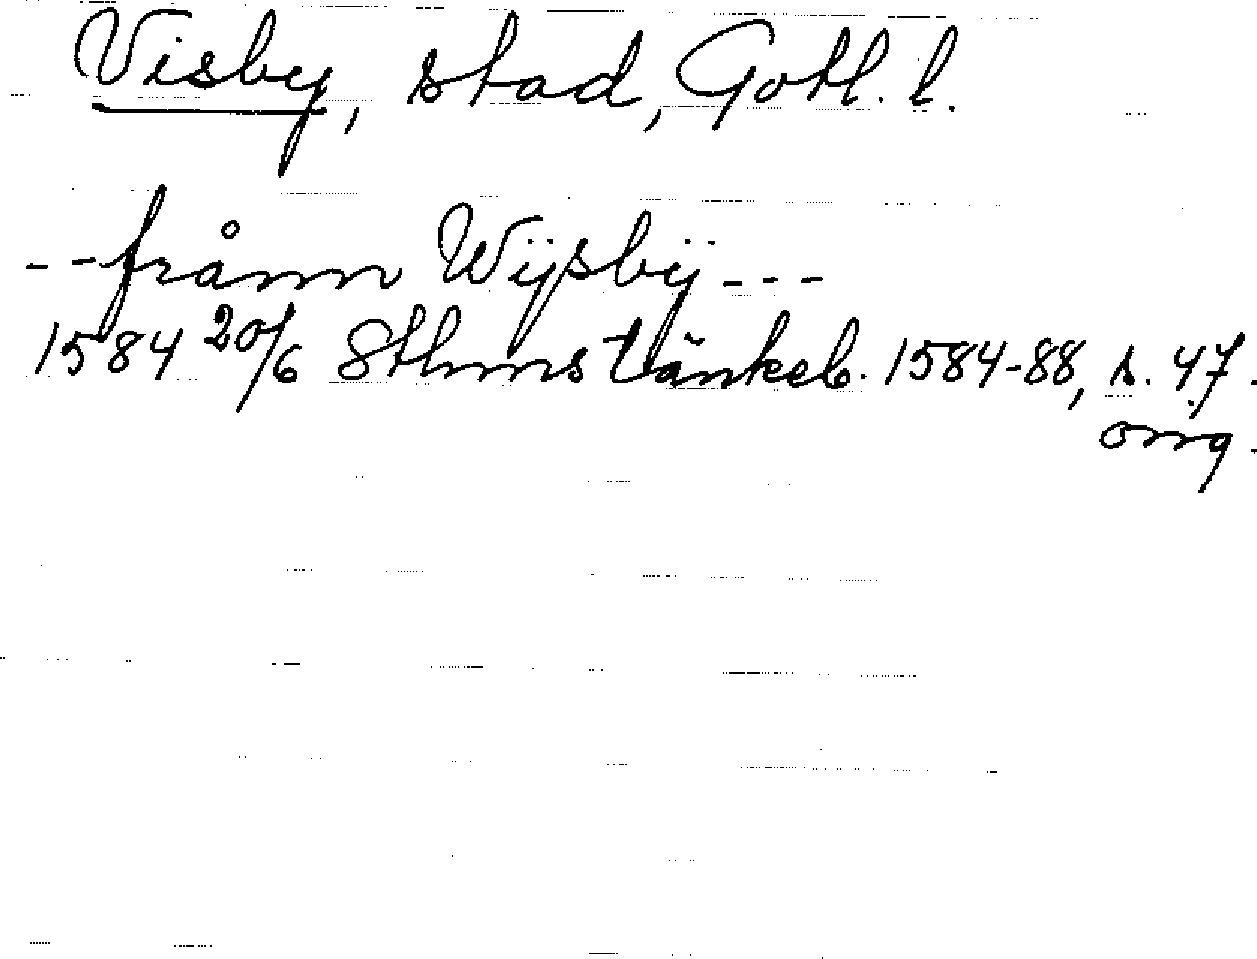 Visby, stad, Gotl. l.
- - frånn Wÿsbÿ - - -
1584 20/6 Sthms tänkeb. 1584-88, s. 47.
orig.